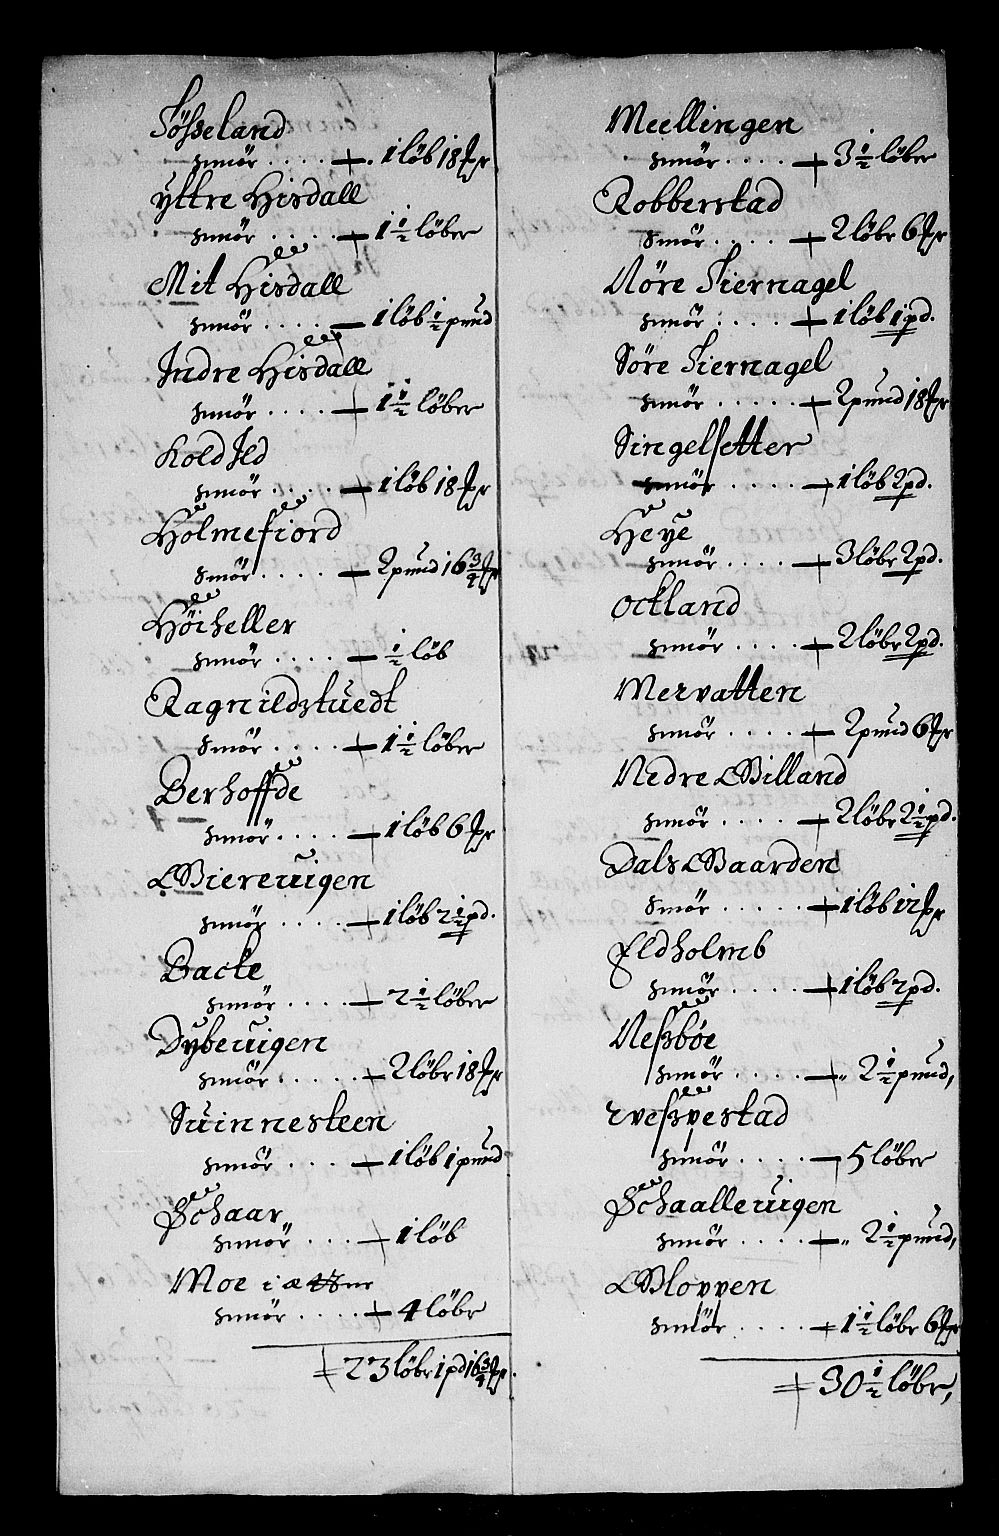 Søsseland
smör . . . . 1 löb 18 ℔r
yttre Hisdall
smör . . . . 1 1/2 löber
Mit Hisdall
smör . . . . 1 löb 1/2 pund
Indre Hisdall
smör . . . . 1 1/2 löber
Kold Ild
smör . . . . 1 löb 18 ℔r
Holmefiord
smör . . . . 2 pund 16 3/4 ℔r
Höiheller
smör . . . . 1/2 löb
Ragnildztuedt
smör . . . . 1 1/2 löber
Berhoffde
smör . . . . 1 löb 6 ℔r
Biereuigen
smör . . . . 1 löb 2 1/2 pd.
Backe
smör . . . . 2 1/2 löber
Dybeuigen
smör . . . . 2 löbr 18 ℔r
Suinnesteen
smör . . . . 1 löb 1 pund
Schaar
smör . . . . 1 löb
Moe i æ
smör . . . . 4 löbr
23 löbr 1 pd 16 3/4 ℔r.
Meellingen
smör . . . . 3 1/2 löber
Robberstad
smör . . . . 2 löbr 6 ℔r
Nöre Siernagel
smör . . . . 1 löb 1 pd.
Söre Siernagel
smör . . . . 2 pund 18 ℔r
Singelsetter
smör . . . . 1 löb 2 pd.
Heye
smör . . . . 3 löbr 2 pd.
Ockland
smör . . . . 2 löbr 2 pd.
Mervatten
smör . . . . 2 pund 6 ℔r
Nedre Billand
smör . . . . 2 löbr 2 1/2 pd.
Dals Baarden
smör . . . . 1 löb 12 ℔r
Eldholmb
smör . . . . 1 löb 2 pd.
Neßböe
smör . . . . „ 2 1/2 pund,
Eveßvestad
smör . . . . 5 löber
Schaalleuigen
smör . . . . „ 2 1/2 pund,
Blovven
smör . . . . 1 1/2 löbr 6 ℔r
30 1/2 löbr,